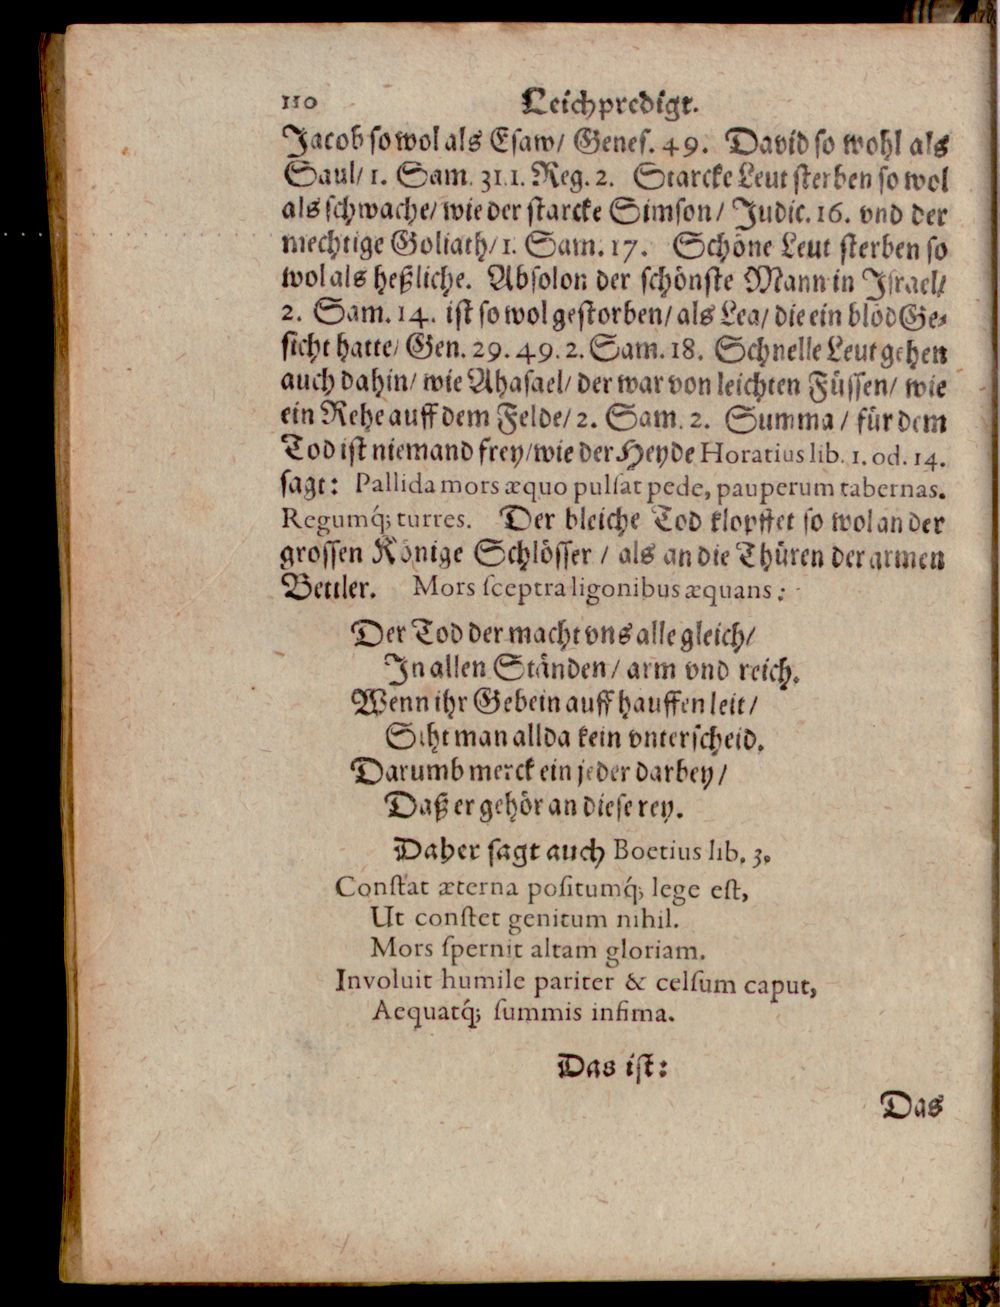 110 Leichpredigt.
Jacob so wol als Esaw/ Genes. 49. David so wohl als
Saul/ 1. Sam. 31. 1. Reg. 2. Starcke Leut sterben so wol
als schwache/ wie der starcke Simson/ Judic. 16. vnd der
mechtige Goliath/ 1. Sam. 17. Schöne Leut sterben so
wol als heßliche. Absolon der schönste Mann in Jsrael/
2. Sam. 14. ist so wol gestorben/ als Lea/ die ein blöd Ge-
sicht hatte/ Gen. 29. 49. 2. Sam. 18. Schnelle Leut gehen
auch dahin/ wie Ahasael/ der war von leichten Füssen/ wie
ein Rehe auff dem Felde/ 2. Sam. 2. Summa / für dem
Tod ist niemand frey/ wie der Heyde Horatius lib. 1. od. 14.
sagt: Pallida mors æquo pulſat pede, pauperum tabernas.
Regumq́; turres. Der bleiche Tod klopffet so wol an der
grossen Könige Schlösser / als an die Thüren der armen
Bettler. Mors ſceptra ligonibus æquans:
Der Tod der macht vns alle gleich/
Jn allen Ständen/ arm vnd reich.
Wenn ihr Gebein auff hauffen leit/
Siht man allda kein vnterscheid.
Darumb merck ein jeder darbey/
Daß er gehör an diese rey.
Daher sagt auch Boetius lib. 3.
Conſtat æterna poſitumq́; lege eſt,
Ut conſtet genitum nihil.
Mors ſpernit altam gloriam.
Involuit humile pariter & celſum caput,
Aequatq́; ſummis infima.
Das ist:
Das